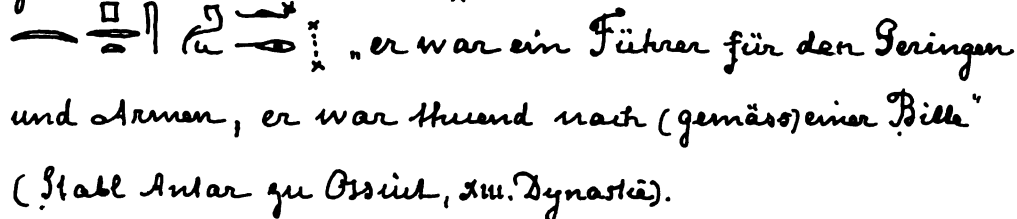 „er war ein Führer für den Geringen
und Armen, er war thuend nach (gemäss) einer Bitte“
(Stabl Antar zu Ossiut, XIII. Dynastie).